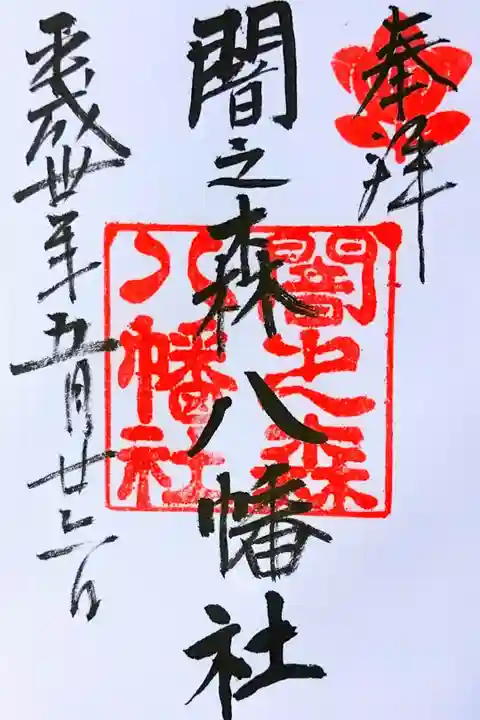 奉拝
闇之森八幡社
闇之森
八幡社
平成卅年五月廿六日